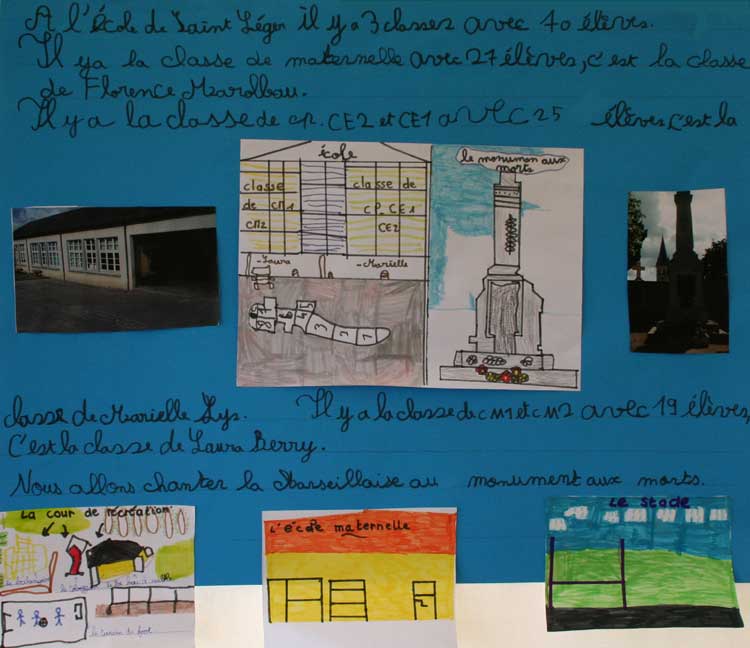 A l'école de Saint Léger il y a 3 classes avec 70 élèves.
Il y a la classe de maternelle avec 27 élèves, c'est la classe
de Florence Marolbau.
Il y a la classe de cp. CE2 et CE1 avec 25 élèves, c'est la
école
classe de CM1 CM2
classe de CP CE1 CE2
-Laura
-Marielle
le monumon aux morts
classe de Marielle Lys. Il y a la classe de CM1 et CM2 avec 19 élèves,
C'est la classe de Laura Berry.
Nous allons chanter la Marseillaise au monument aux morts.
La cour de récréation
le toboggan
le terrain de foot
l'école maternelle
Le Stade